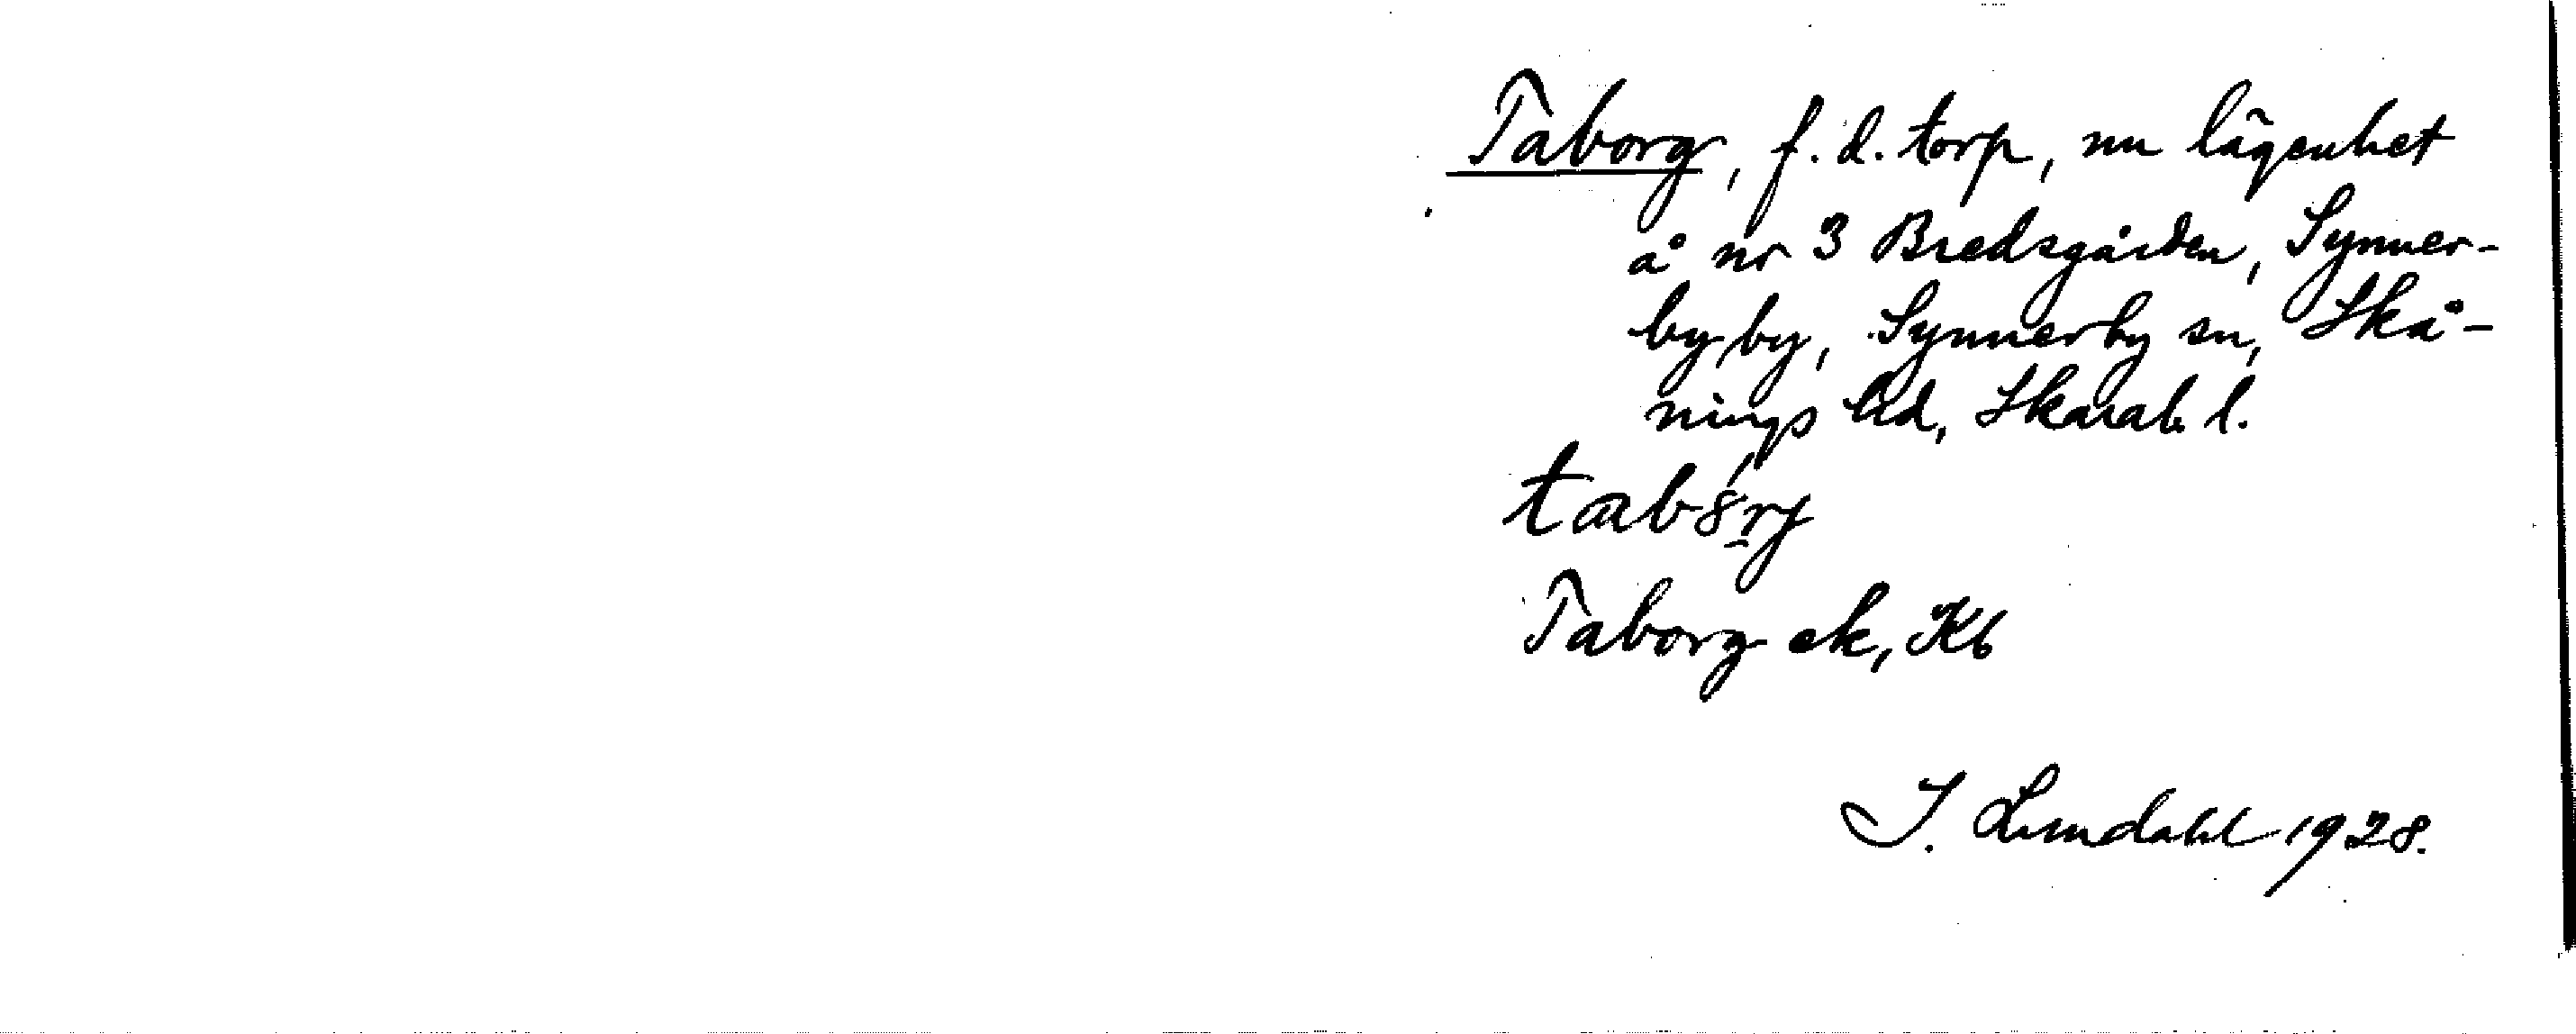 Taborg, f. d. torp, nu lägenhet
å nr 3 Bredsgården, Synner-
by by, Synnerby sn, Skå-
nings hd, Skarab. l.
Taborg ek, Kb
J. Lundahl 1928.